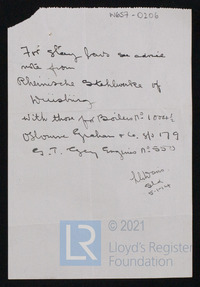 W657-0206
For Stay bars see advice
note from
Rheinische Stahlwerke of
Duisburg
With those for Boiler No
Osbourne Graham & Co. No 179
G. T. Grey Engines No
© 2021
LR
Lloyd's Register
Foundation